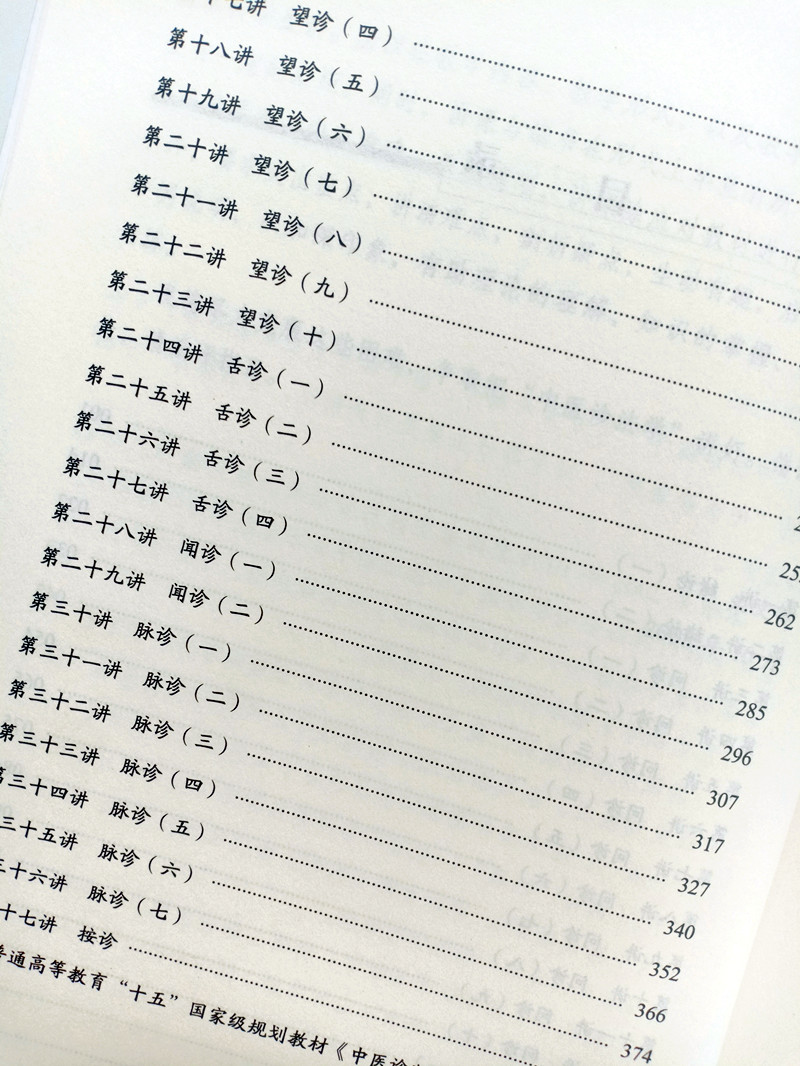 十七讲 望诊（四）
第十八讲 望诊（五）
第十九讲 望诊（六）
第二十讲 望诊（七）
第二十一讲 望诊（八）
第二十二讲 望诊（九）
第二十三讲 望诊（十）
第二十四讲 舌诊（一）
第二十五讲 舌诊（二）
第二十六讲 舌诊（三） 262
第二十七讲 舌诊（四） 273
第二十八讲 闻诊（一） 285
第二十九讲 闻诊（二） 296
第三十讲 脉诊（一） 307
第三十一讲 脉诊（二） 317
第三十二讲 脉诊（三） 327
第三十三讲 脉诊（四） 340
第三十四讲 脉诊（五） 352
三十五讲 脉诊（六） 366
三十六讲 脉诊（七） 374
十七讲 按诊
普通高等教育“十五”国家级规划教材《中医诊